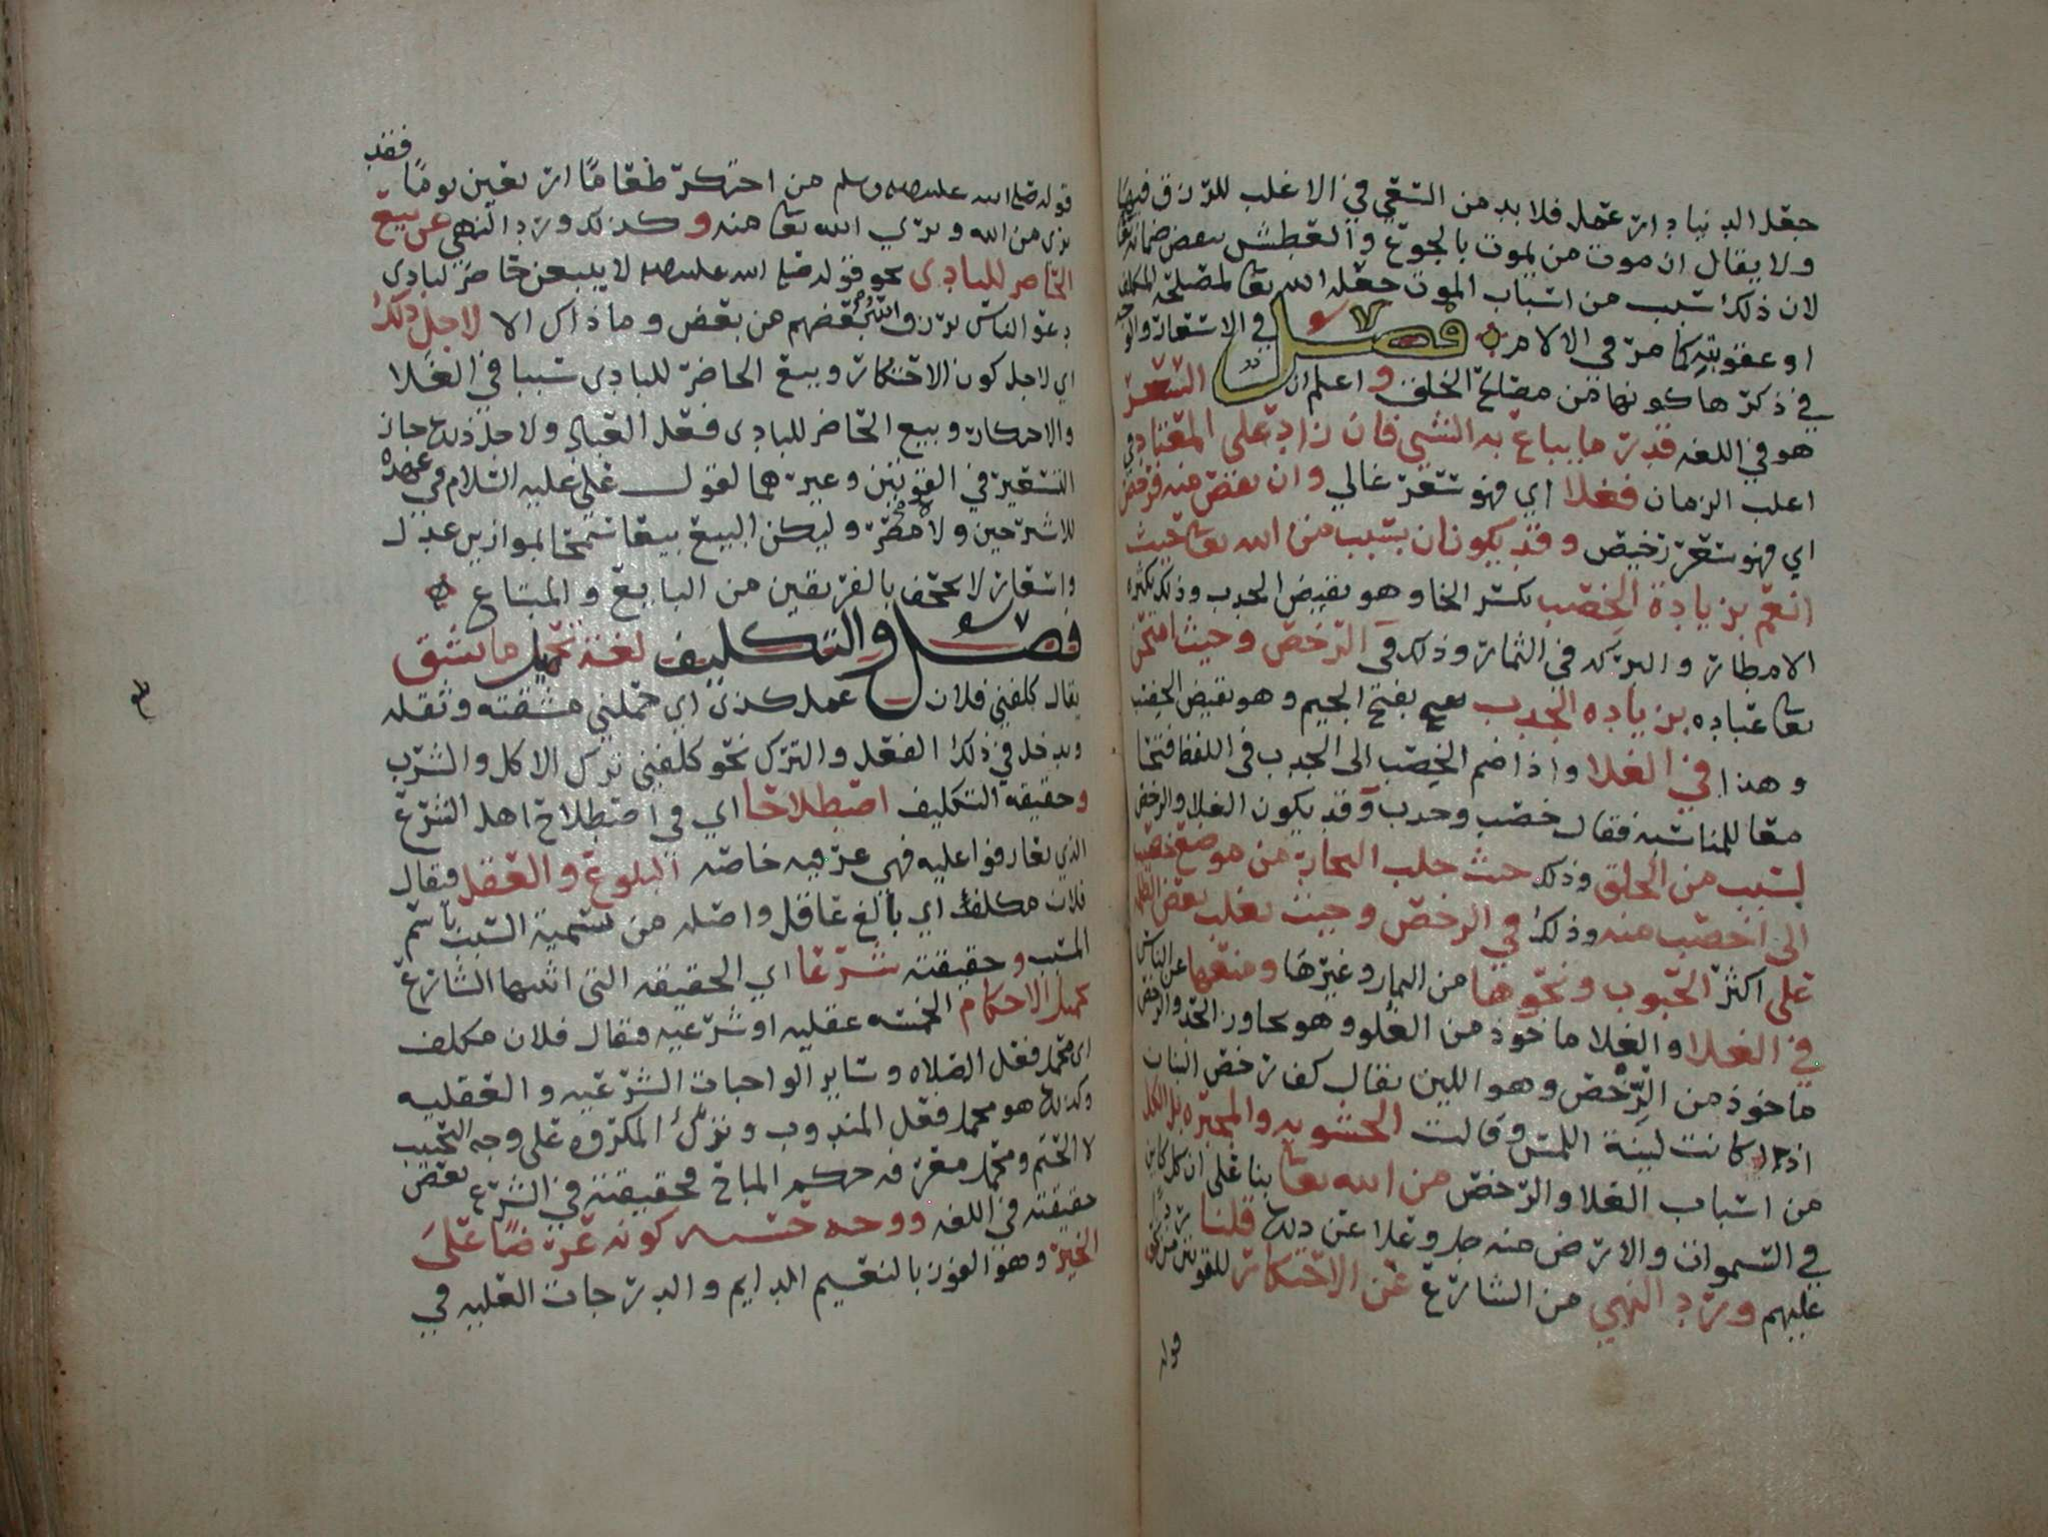 جعل الدنيا دار عمل فلا بد من السعي في الاغلب للرزق فيها
ولا يقال ان موت من يموت بالجوع والعطش ينقض ضمانه تعا
لان ذلك سبب من اسباب الموت جعله الله تعا لمصلحة المكلف
او عقوبته كما مر في الالام فصل في الاسعار والوجه
في ذكرها كونها من مصالح الخلق واعلم ان السعر
هو في اللغه قدر ما يباع به الشي فان زاد على المعتاد في
اغلب الزمان فغلا اي فهو سعر غالي وان نقص منه فرخص
اي فهو سعر رخيص وقد يكونان بسبب من الله تعا حيث
انعم بزيادة الخصب بكسر الخا وهو نقيض الجدب وذلك بكثره
الامطار والبركه في الثمار وذلك في الرخص وحيث امتحن
تعا عباده بزياده الجدب بفتح الجيم وهو نقيض الخصب
وهذا في الغلا واذا ضم الخصب الى الجدب في اللفظ فتحا
معا للمناسبه فيقال خصب وجدب وقد يكون الغلا والرخص
بسبب من الخلق وذلك حيث جلب التجار من موضع خصيب
الى اخصب منه وذلك في الرخص وحيث تغلب بعض الظلمه
على اكثر الحبوب ونحوها من الثمار وغيرها ومنعها عن الناس
في الغلا والغلا ماخوذ من الغلو وهو مجاوز الحد والرخص
ماخوذ من الرخص وهو اللين يقال كف رخص البنان
اذا كانت لينة اللمس وقالت الحشويه والمجبره بل الكل
من اسباب الغلا والرخص من الله تعا بنا على ان كل كاين
في السموات والارض منه جل وعلا عن ذلك قلنا ردا
عليهم ورد النهي من الشارع عن الاحتكار للقوتين
قوله
قوله صلى الله عليه وسلم من احتكر طعاما اربعين يوما فقد
بري من الله وبري الله تعا منه وكذلك ورد النهي عن بيع
الحاضر للبادي نحو قوله صلى الله عليه لا يبيعن حاضر لبادي
دعوا الناس يرزق الله بعضهم من بعض وما ذاك الا لاجل ذلك
اي لاجل كون الاحتكار وبيع الحاضر للبادي سببا في الغلا
والاحتكار وبيع الحاضر للبادي فعل العباد ولاجل ذلك جاز
التسعير في القوتين وغيرهما لقول علي عليه السلام في عهده
للاشتر حين ولاه مصر وليكن البيع بيعا سمحا بموازين عدل
واسعار لا تجحف بالفريقين من البايع والمبتاع
فصل والتكليف لغة تحميل ما يشق
يقال كلفني فلان عمل كذى اي حملني مشقته وثقله
ويدخل في ذلك الفعل والترك نحو كلفني ترك الاكل والشرب
وحقيقة التكليف اصطلاحا اي في اصطلاح اهل الشرع
الذي تعارفوا عليه فهي عرفيه خاصه البلوغ والعقل فيقال
فلان مكلف اي بالغ عاقل واصله من تسمية السبب باسم
المسبب وحقيقته شرعا اي الحقيقه التي اثبتها الشارع
تحميل الاحكام الخمسه عقليه او شرعيه فيقال فلان مكلف
اي محمل فعل الصلاه وساير الواجبات الشرعيه والعقليه
وكذلك هو محمل فعل المندوب وترك المكروه على وجه التحبيب
لا الحتم ومحمل معرفه حكم المباح فحقيقته في الشرع بعض
حقيقته في اللغه ووجه حسنه كونه عرضا على
الخير وهو الفوز بالنعيم الدايم والدرجات العليه في